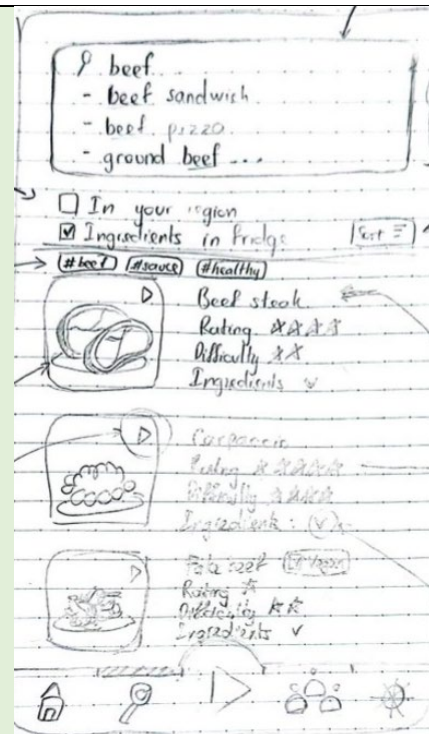 beef...
- beef sandwich
- beef pizza
- ground beef ...
In your region
Ingredients in fridge
Sort
#beef #sauce #healthy
Beef steak
Rating
Difficulty
Ingredients
Rating
Difficulty
Ingredients:
Rating
Difficulty
Ingredients